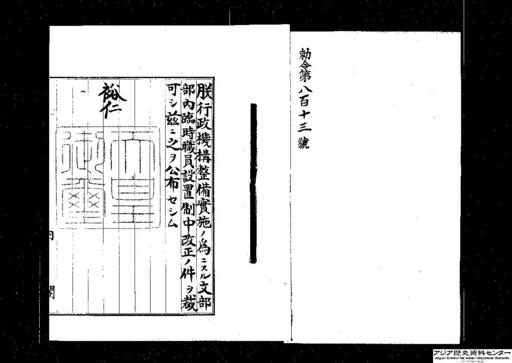 勅令第八百十三號
朕行政機構整備實施ノ爲ニスル文部
部內臨時職員設置制中改正ノ件ヲ裁
可シ茲ニ之ヲ公布セシム
裕仁
天皇
御璽
內閣
アジア歴史資料センター
Japan Center for Asian Historical Records